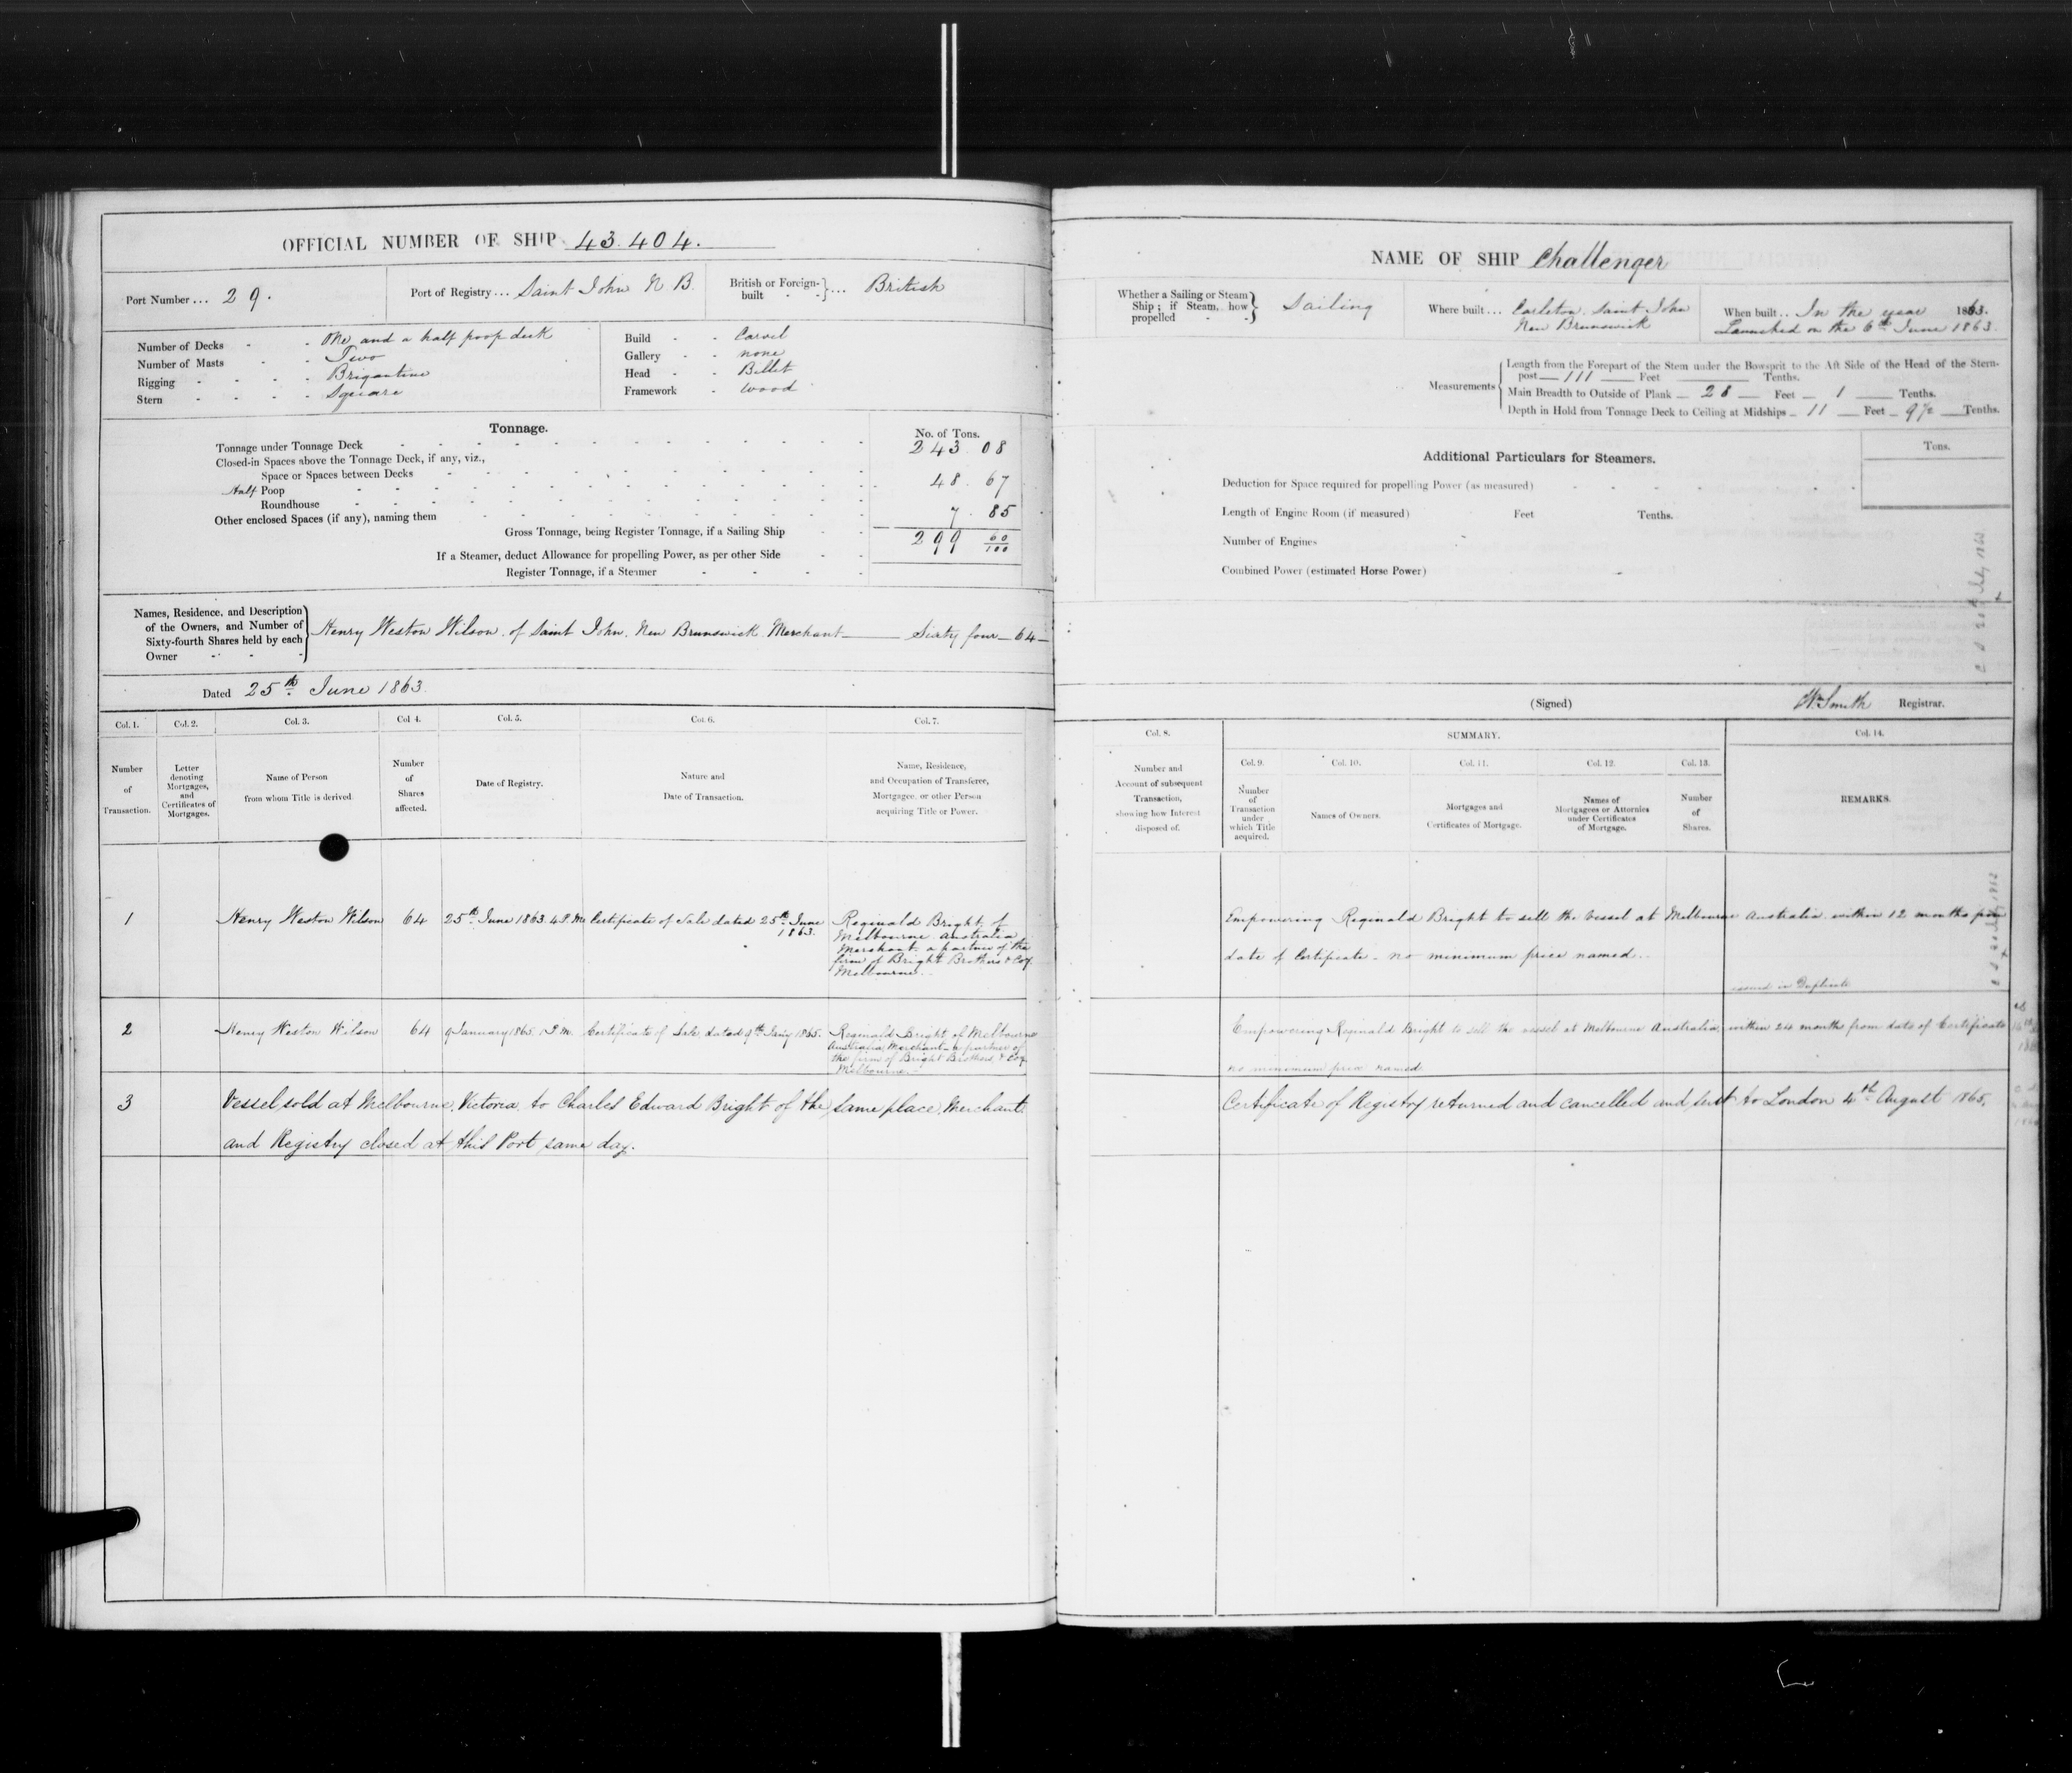 OFFICIAL NUMBER OF SHIP 43.404.
Port Number ... 29.
Port of Registry ... Saint John N B.
British or Foreign-built } ... British
Number of Decks - - One and a half poop deck
Number of Masts - - Two
Rigging - - - - Brigantine
Stern - - - - Square
Build - - Carvel
Gallery - - none
Head - - Billet
Framework - wood
Tonnage.
No. of Tons.
Tonnage under Tonnage Deck 243. 08
Closed-in Spaces above the Tonnage Deck, if any, viz.,
Space or Spaces between Decks
Half Poop 48. 67
Roundhouse
Other enclosed Spaces (if any), naming them 7. 85
Gross Tonnage, being Register Tonnage, if a Sailing Ship 299 60/100
If a Steamer, deduct Allowance for propelling Power, as per other Side
Register Tonnage, if a Steamer
Names, Residence, and Description of the Owners, and Number of Sixty-fourth Shares held by each Owner
Henry Weston Wilson. of Saint John. New Brunswick Merchant — Sixty four — 64 —
Dated 25th June 1863.
Col. 1. Col. 2. Col. 3. Col 4. Col. 5. Col. 6. Col. 7.
Number of Transaction.
Letter denoting Mortgages, and Certificates of Mortgages.
Name of Person from whom Title is derived
Number of Shares affected.
Date of Registry.
Nature and Date of Transaction.
Name, Residence, and Occupation of Transferee, Mortgagee, or other Person acquiring Title or Power.
1 Henry Weston Wilson 64 25th June 1863 4 P.M. Certificate of Sale dated 25th June 1863.
Reginald Bright of
Melbourne Australia
Merchant. a partner of the
firm of Bright Brothers & Coy.
Melbourne.
2 Henry Weston Wilson 64 9 January 1865. 1 P.M. Certificate of Sale dated 9th Jany 1865.
Reginald Bright of Melbourne
Australia Merchant - a partner of
the firm of Bright Brothers & Coy
Melbourne. -
3 Vessel sold at Melbourne, Victoria to Charles Edward Bright of the same place, Merchant
and Registry closed at this Port same day.
NAME OF SHIP Challenger
Whether a Sailing or Steam Ship; if Steam, how propelled } Sailing
Where built ... Carleton. Saint John
New Brunswick
When built .. In the year 1863.
Launched on the 6th June 1863.
Measurements
Length from the Forepart of the Stem under the Bowsprit to the Aft Side of the Head of the Stern-
post — 111 — Feet — Tenths.
Main Breadth to Outside of Plank — 28 — Feet — 1 — Tenths.
Depth in Hold from Tonnage Deck to Ceiling at Midships — 11 — Feet — 9½ — Tenths.
Additional Particulars for Steamers.
Tons.
Deduction for Space required for propelling Power (as measured)
Length of Engine Room (if measured) Feet Tenths.
Number of Engines
Combined Power (estimated Horse Power)
(Signed) Wm Smith Registrar.
Col. 8. SUMMARY. Col. 14.
Col. 9. Col. 10. Col. 11. Col. 12. Col. 13.
Number and Account of subsequent Transaction, showing how Interest disposed of.
Number of Transaction under which Title acquired.
Names of Owners.
Mortgages and Certificates of Mortgage.
Names of Mortgagees or Attornies under Certificates of Mortgage.
Number of Shares.
REMARKS.
Empowering Reginald Bright to sell the vessel at Melbourne Australia within 12 months from
date of Certificate - no minimum price named..
issued in Duplicate
Empowering Reginald Bright to sell the vessel at Melbourne Australia, within 24 month from date of Certificate
no minimum price named
Certificate of Registry returned and cancelled and sent to London 4th August 1865.